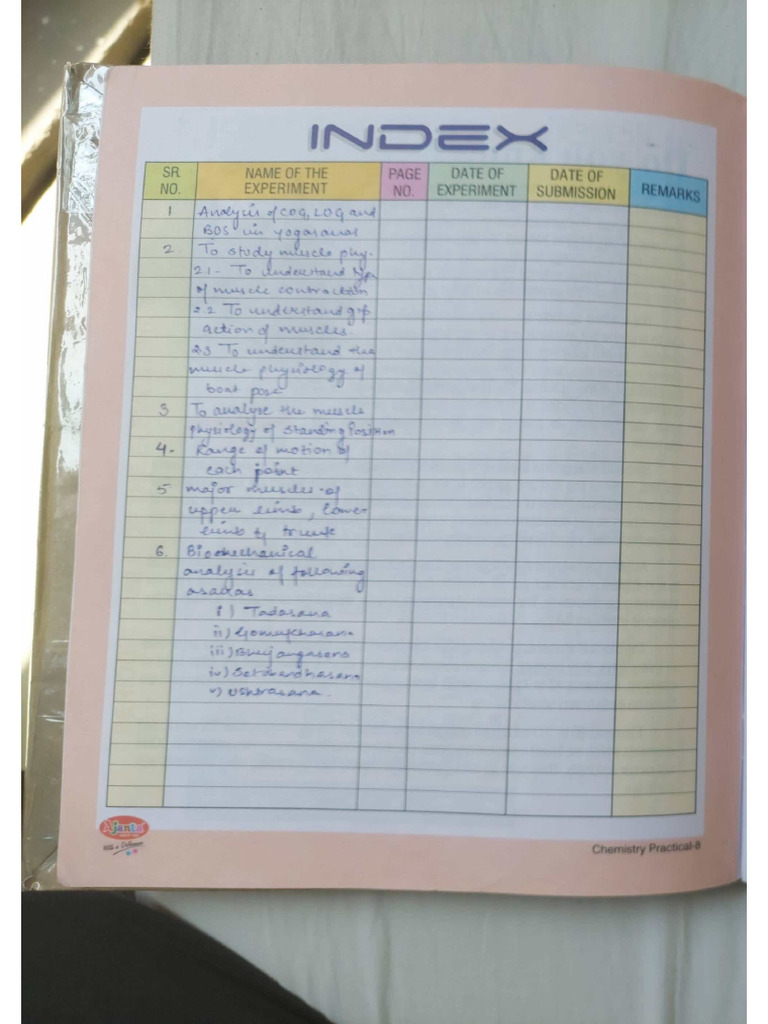 INDEX
SR NO. NAME OF THE EXPERIMENT PAGE NO. DATE OF EXPERIMENT DATE OF SUBMISSION REMARKS
1 Analysis of COG, LOG and
BOS in yogasanas
2 To study muscle phy.
2.1- To understand type
of muscle contraction
2.2 To understand grp
action of muscles.
2.3 To understand the
muscle physiology of
boat pose
3 To analyse the muscle
physiology of Standing Position
4- Range of motion of
each joint
5 major muscles of
upper limb, lower
limb & trunk
6. Biomechanical
analysis of following
i) Tadasana
ii) Gomukhasana
iii) Bhujangasana
iv)
v) Ushtrasana.
Ajanta
Chemistry Practical-8